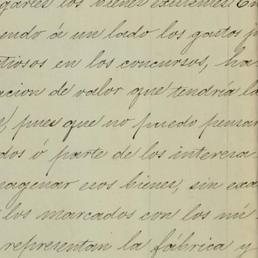 garles los bienes existentes. En
endo á un lado los gastos j
tiosos en los concursos, ha
acion de valor que tendría la
, pues que no puedo pensar
dos ó parte de los interesa-
nagenar esos bienes, sin exa
los marcados con los nú-
representan la fábrica y